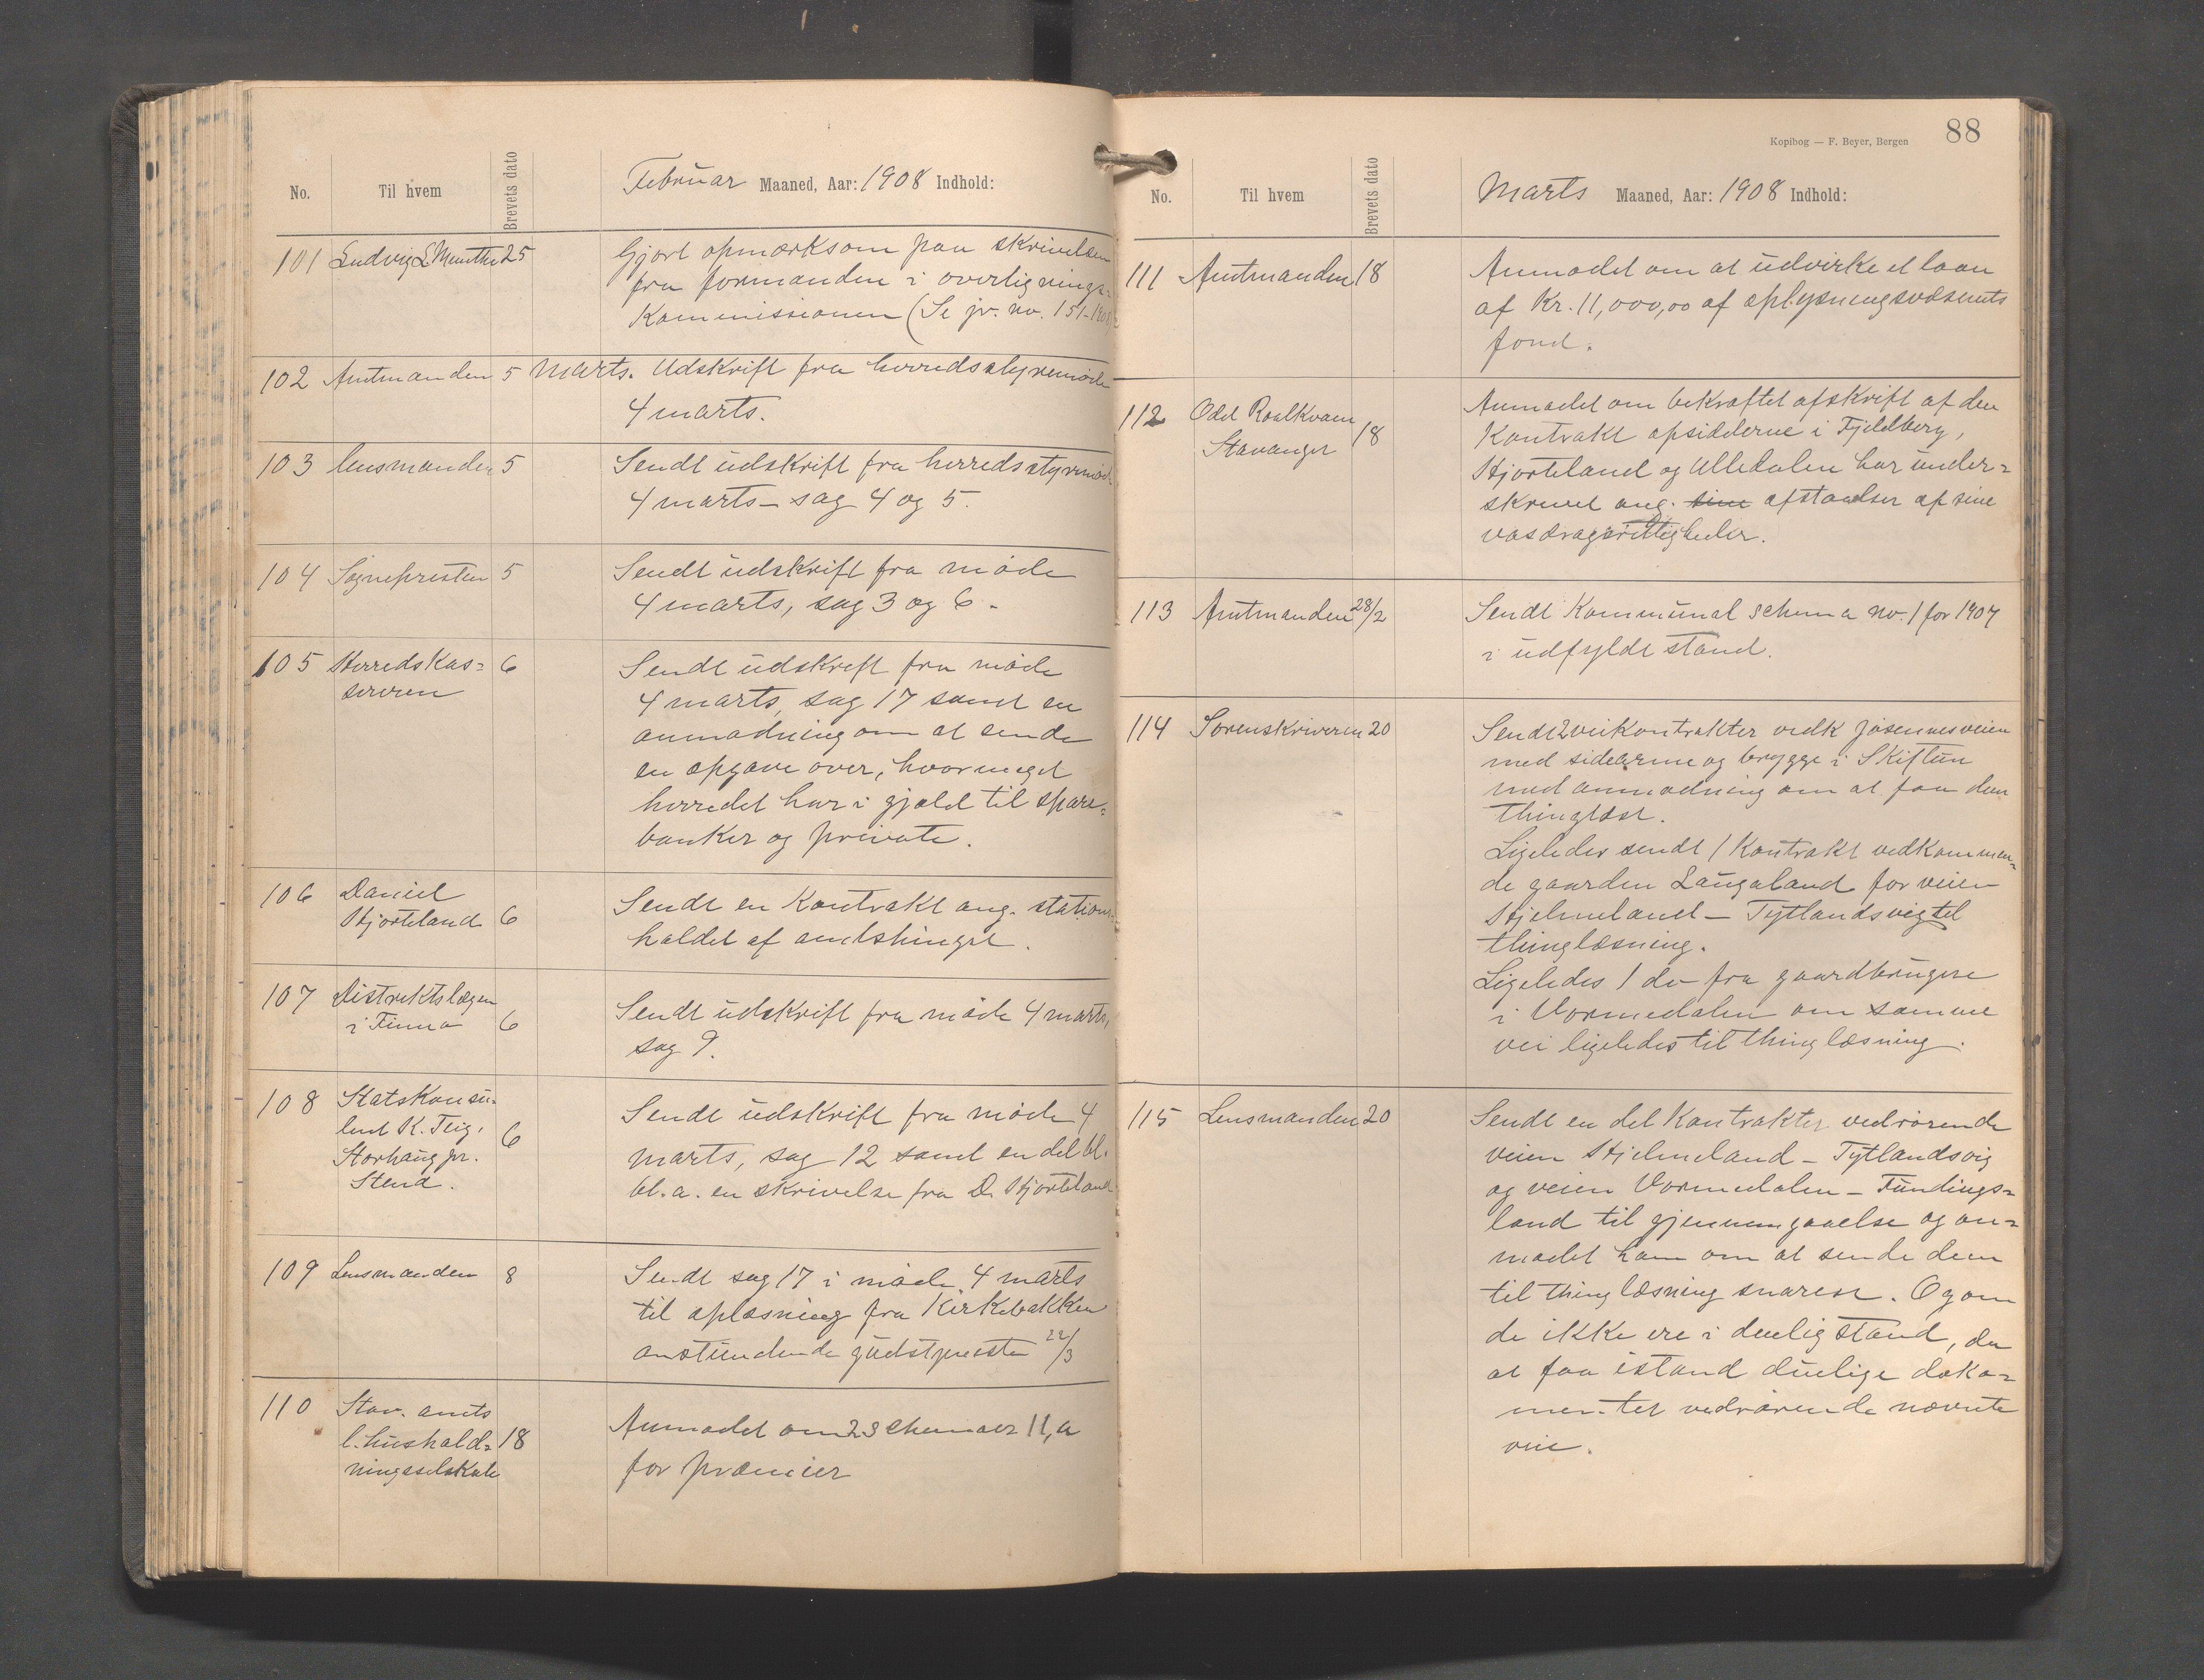 No. Til hvem Brevets dato Februar Maaned, Aar: 1908 Indhold:
101 Ludvig L Munthe 25 Gjort opmærksom paa skrivelsen
fra formanden i overlignings-
Kommissionen (Se jr. no. 151-1908)
102 Amtmanden 5 Marts. Udskrift fra herredsstyremøde
4 marts.
103 Lensmanden 5 Sendt udskrift fra herredsstyremøde
4 marts – sag 4 og 5.
104 Sognepresten 5 Sendt udskrift fra møde
4 marts, sag 3 og 6.
105 Herredskas= 6 Sendt udskrift fra møde
sereren 4 marts, sag 17 samt en
anmodning om at sende
en opgave over, hvormeget
herredet har i gjæld til spare=
banker og private.
106 Daniel Sendt en Kontrakt ang. stations-
Hjorteland 6 holdet af amtsthinget.
107 Distriktslægen Sendt udskrift fra møde 4 marts,
i Finnø 6 sag 9.
108 Statskonsu-
lent K. Teig, 6 Sendt udskrift fra møde 4
Storhaug pr. marts, sag 12 samt en del bl.
Stend. bl. a. en skrivelse fra D. Hjorteland
109 Lensmanden 8 Sendt sag 17 i møde 4 marts
til oplæsning fra Kirkebakken
anstundende gudstjeneste 22/3
110 Stav. amts
l. hushold= 18 Anmodet om 2 schemaer 11, a
ningsselskab for præmier
Kopibog — F. Beyer, Bergen 88
No. Til hvem Brevets dato Marts Maaned, Aar: 1908 Indhold:
111 Amtmanden 18 Anmodet om at udvirke et laan
af Kr. 11,000,00 af oplysningsvæsenets
fond.
112 Odd Raalkvam 18 Anmodet om bekræftet afskrift af den
Stavanger Kontrakt opsidderne i Fjeldberg,
Hjorteland og Ulledalen har under=
skrevet ang. sine afstaaelser af sine
vasdragsrettigheder.
113 Amtmanden 28/2 Sendt Kommunal schema no. 1 for 1907
i udfyldt stand.
114 Sorenskriveren 20 Sendt 2 veikontrakter vedk Jøsennesveien
med sidearme og brygge i Skiftun
med anmodning om at faa dem
thinglæst.
Ligeledes sendt 1 Kontrakt vedkommen=
de gaarden Laugaland for veien
Hjelmeland – Tytlandsvig til
thinglæsning.
Ligeledes 1 do fra gaardbrugere
i Vormedalen om samme
vei ligeledes til thinglæsning.
115 Lensmanden 20 Sendt en del Kontrakter vedrørende
veien Hjelmeland – Tytlandsvig
og veien Vormedalen – Fundings=
land til gjennemgaaelse og an=
modet ham om at sende dem
til thinglæsning snarest. Og om
de ikke ere i duelig stand, da
at faa istand duelige doku=
menter vedrørende nævnte
veie.